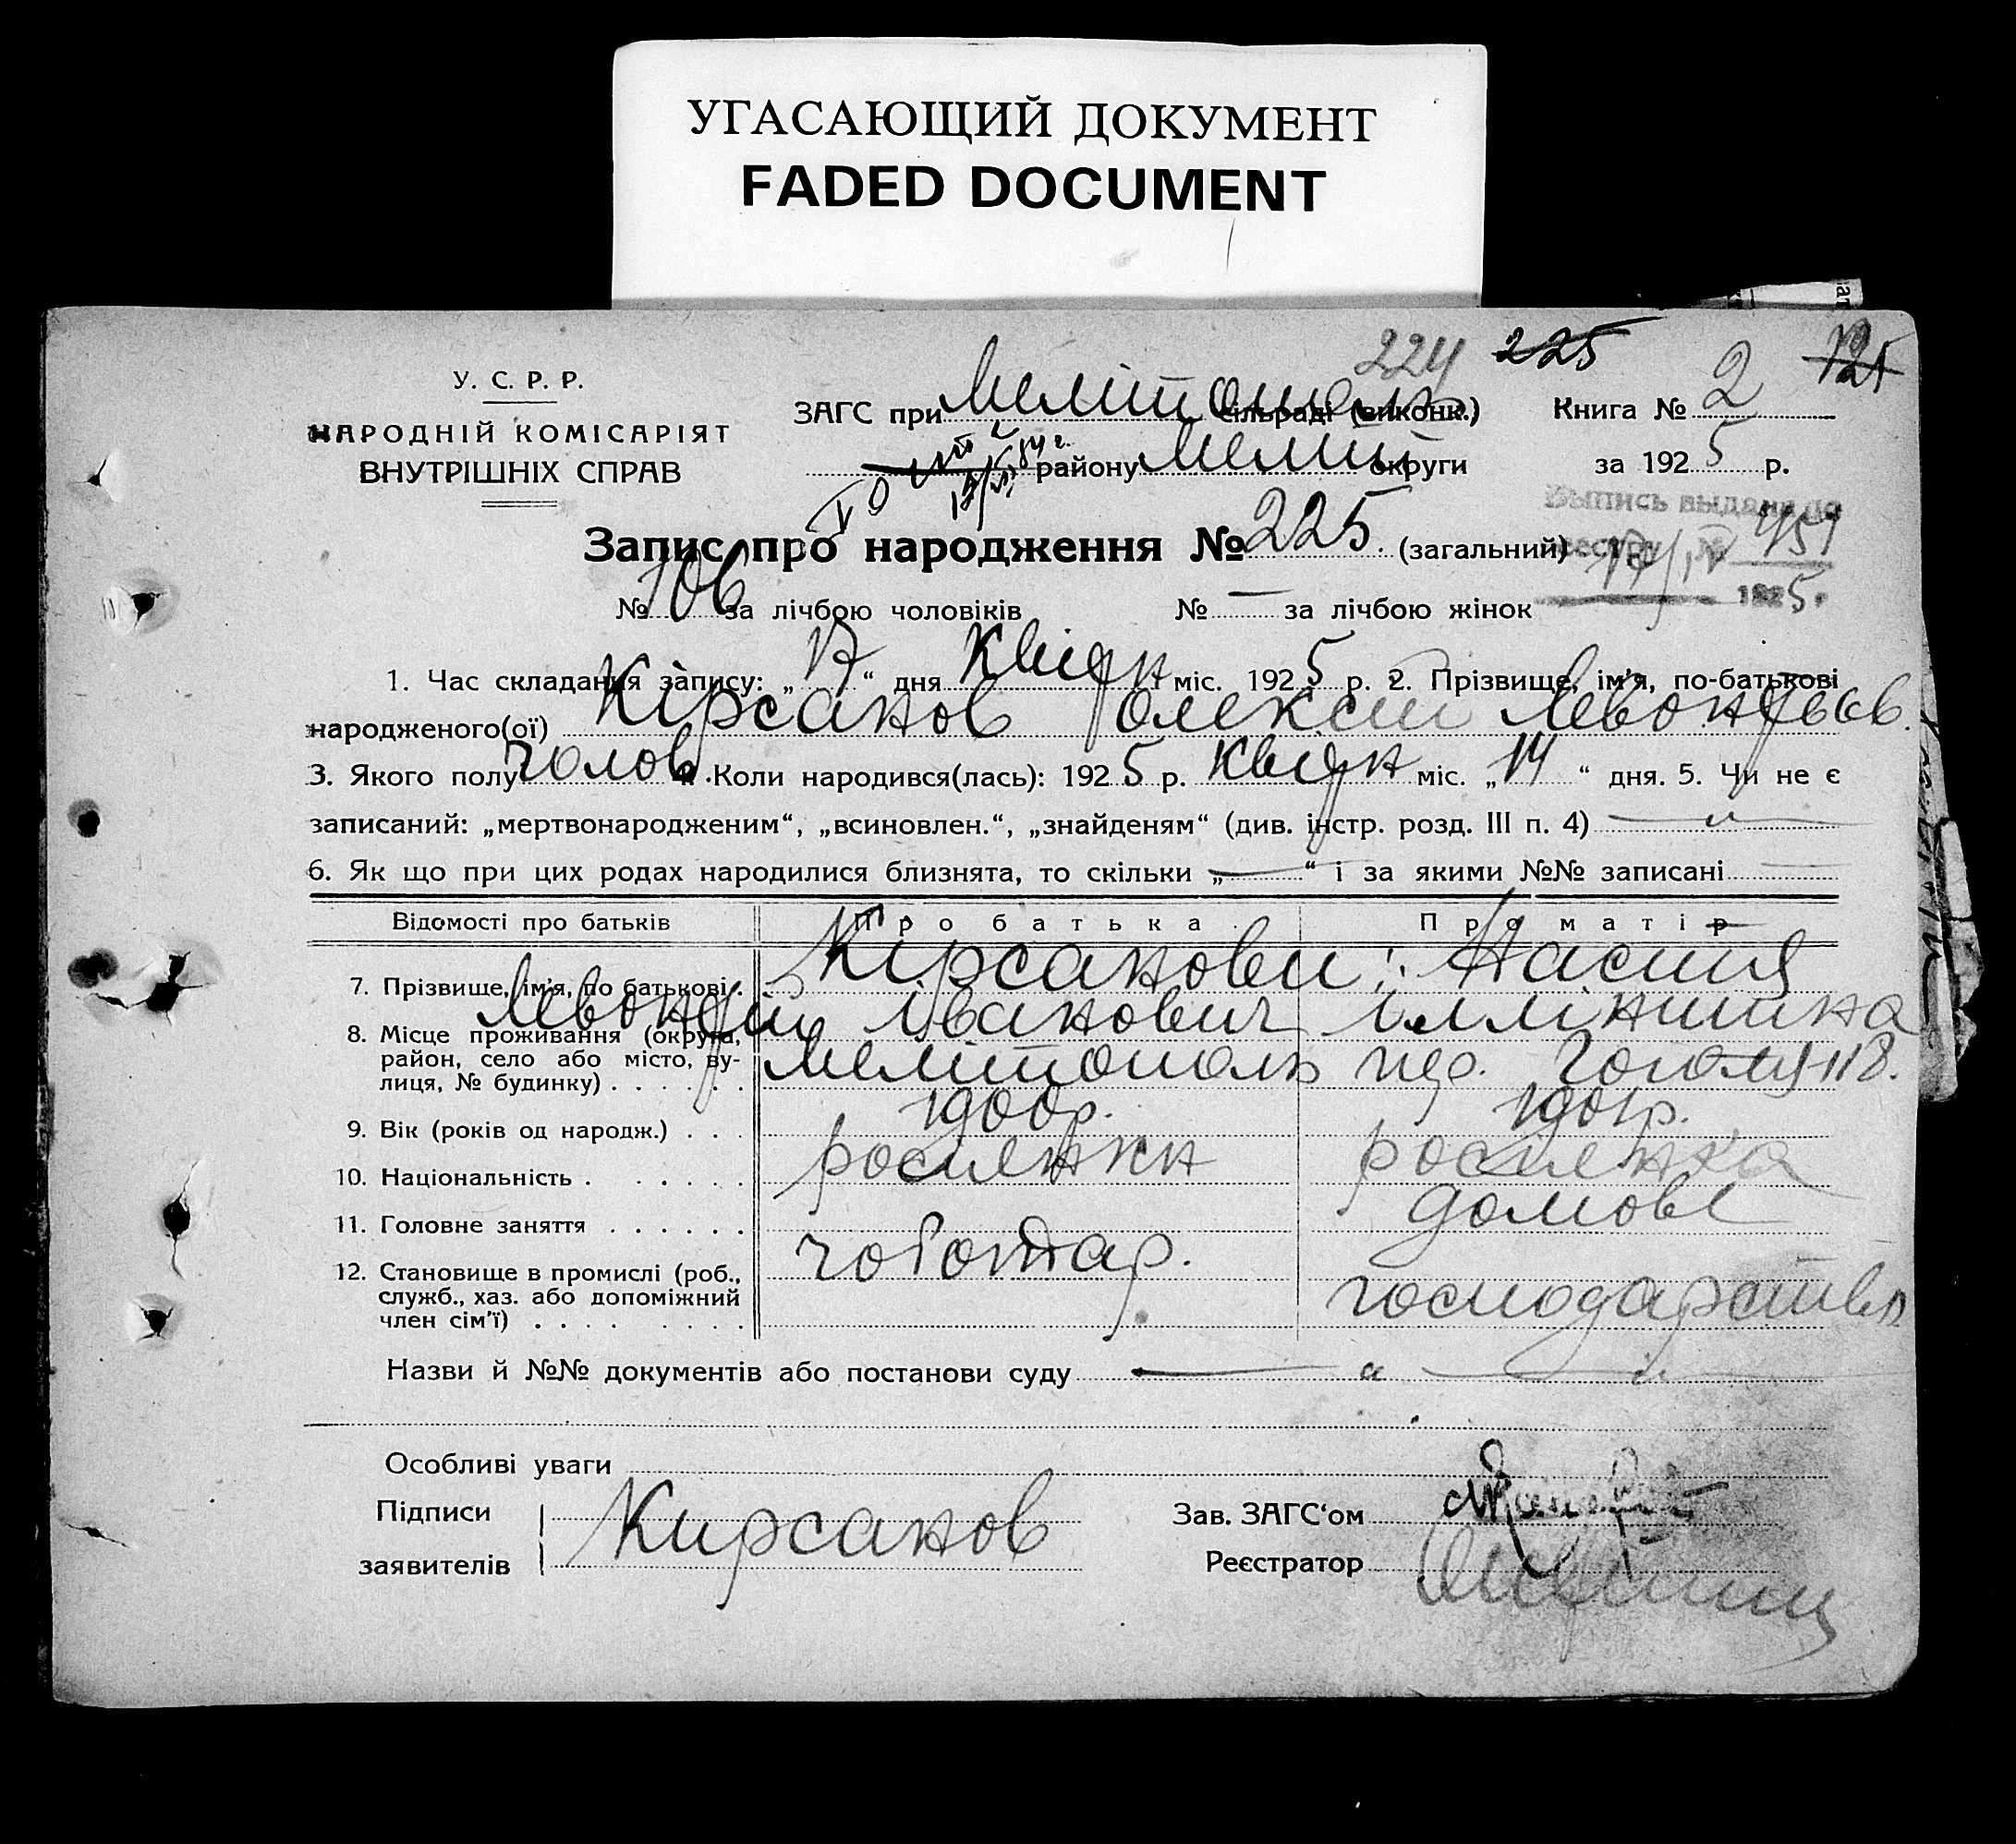 УГАСАЮЩИЙ ДОКУМЕНТ
FADED DOCUMENT
224 225 121
У. С. Р. Р.
НАРОДНІЙ КОМІСАРІЯТ
ВНУТРІШНІХ СПРАВ
ЗАГС при Мелітополь сільраді (виконк.) Книга № 2
району Меліт округи за 1925 р.
Выпись выдана по
реестру № 451
1925 г.
Запис про народження № 225. (загальний)
№ 106 за лічбою чоловіків № — за лічбою жінок
1. Час складання запису: „17“ дня Квидня міс. 1925 р. 2. Прізвище, ім'я, по-батькові
народженого(ої) Кірсанов Олексій
3. Якого полу чолов. 4. Коли народився(лась): 1925 р. Квидня міс. „14“ дня. 5. Чи не є
записаний: „мертвонародженим“, „всиновлен.“, „знайденям“ (див. інстр. розд. III п. 4) — „ —
6. Як що при цих родах народилися близнята, то скільки „—“ і за якими №№ записані —
Відомості про батьків Про батька Про матір
7. Прізвище, ім'я, по батькові . Кірсанови: Настя
Левондій Іванович
8. Місце проживання (округа,
район, село або місто, ву-
лиця, № будинку) . . . . . . Мелітополь 118.
9. Вік (років од народж.) . . . 1900р. 1901р.
10. Національність . . . . . . росиянин росиянка
11. Головне заняття . . . . . . чоботар. домове
12. Становище в промислі (роб.,
служб., хаз. або допоміжний
член сім'ї) . . . . . . . . господарств
Назви й №№ документів або постанови суду — „ — „ —
Особливі уваги
Підписи
заявителів Кирсанов
Зав. ЗАГС'ом
Реєстратор